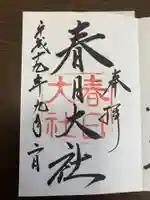 奉拝
春日大社
春日大社
平成十九年九月一日